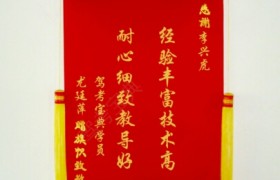 感谢李兴虎
经验丰富技术高
耐心细致教导好
驾考宝典学员
尤廷萍